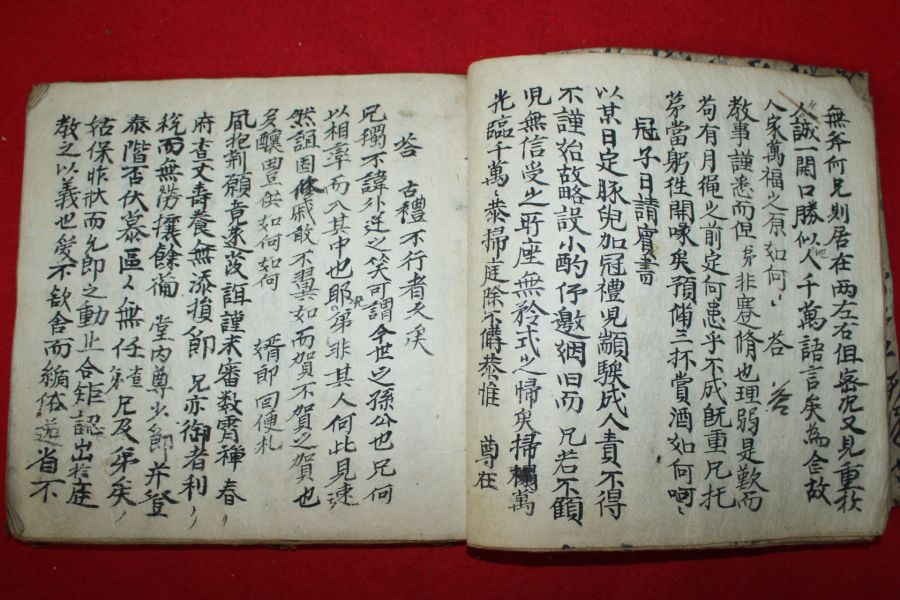 無斧何兄則居在兩左右但客況又見重於
人誠一開口勝似他人千萬語言矣為合故
人家萬福之原如何〻 答 答
教事謹悉而但弟非蹇脩也理弱是歎而
苟有月繩之前定何患乎不成旣重兄托
第當躬徃開喙矣預備三杯賞酒如何呵〻
冠子日請賓書
以某日定豚兒加冠禮兒顓騃成人責不得
不謹始故略設小酌仔邀烟旧而 兄若不顧
児無信受之所座無矜式之歸矣掃 萬
光臨千萬 恭掃庭除不備恭惟 尊在
答 古禮不行者久矣
兄獨不諱外逆之笑可謂今世之孫公也兄何
以相率而入其中也耶弟非其人何此見速
然誼固 戚敢不翼如而賀不賀之賀也
多釀豊供如何如何 婿郎 回便札
凮抱剌願竟蒙茂誼謹未審数宵禅春〻
府查丈壽養無添損節 兄亦御者利〻
税而無勞攘餘崙 堂内尊少節并登
泰階否伏慕區〻無任查兄及弟矣〻
姑保非狀而允郎之動止合矩認出於庭
教之以義也愛不欲舍而 俗 省不